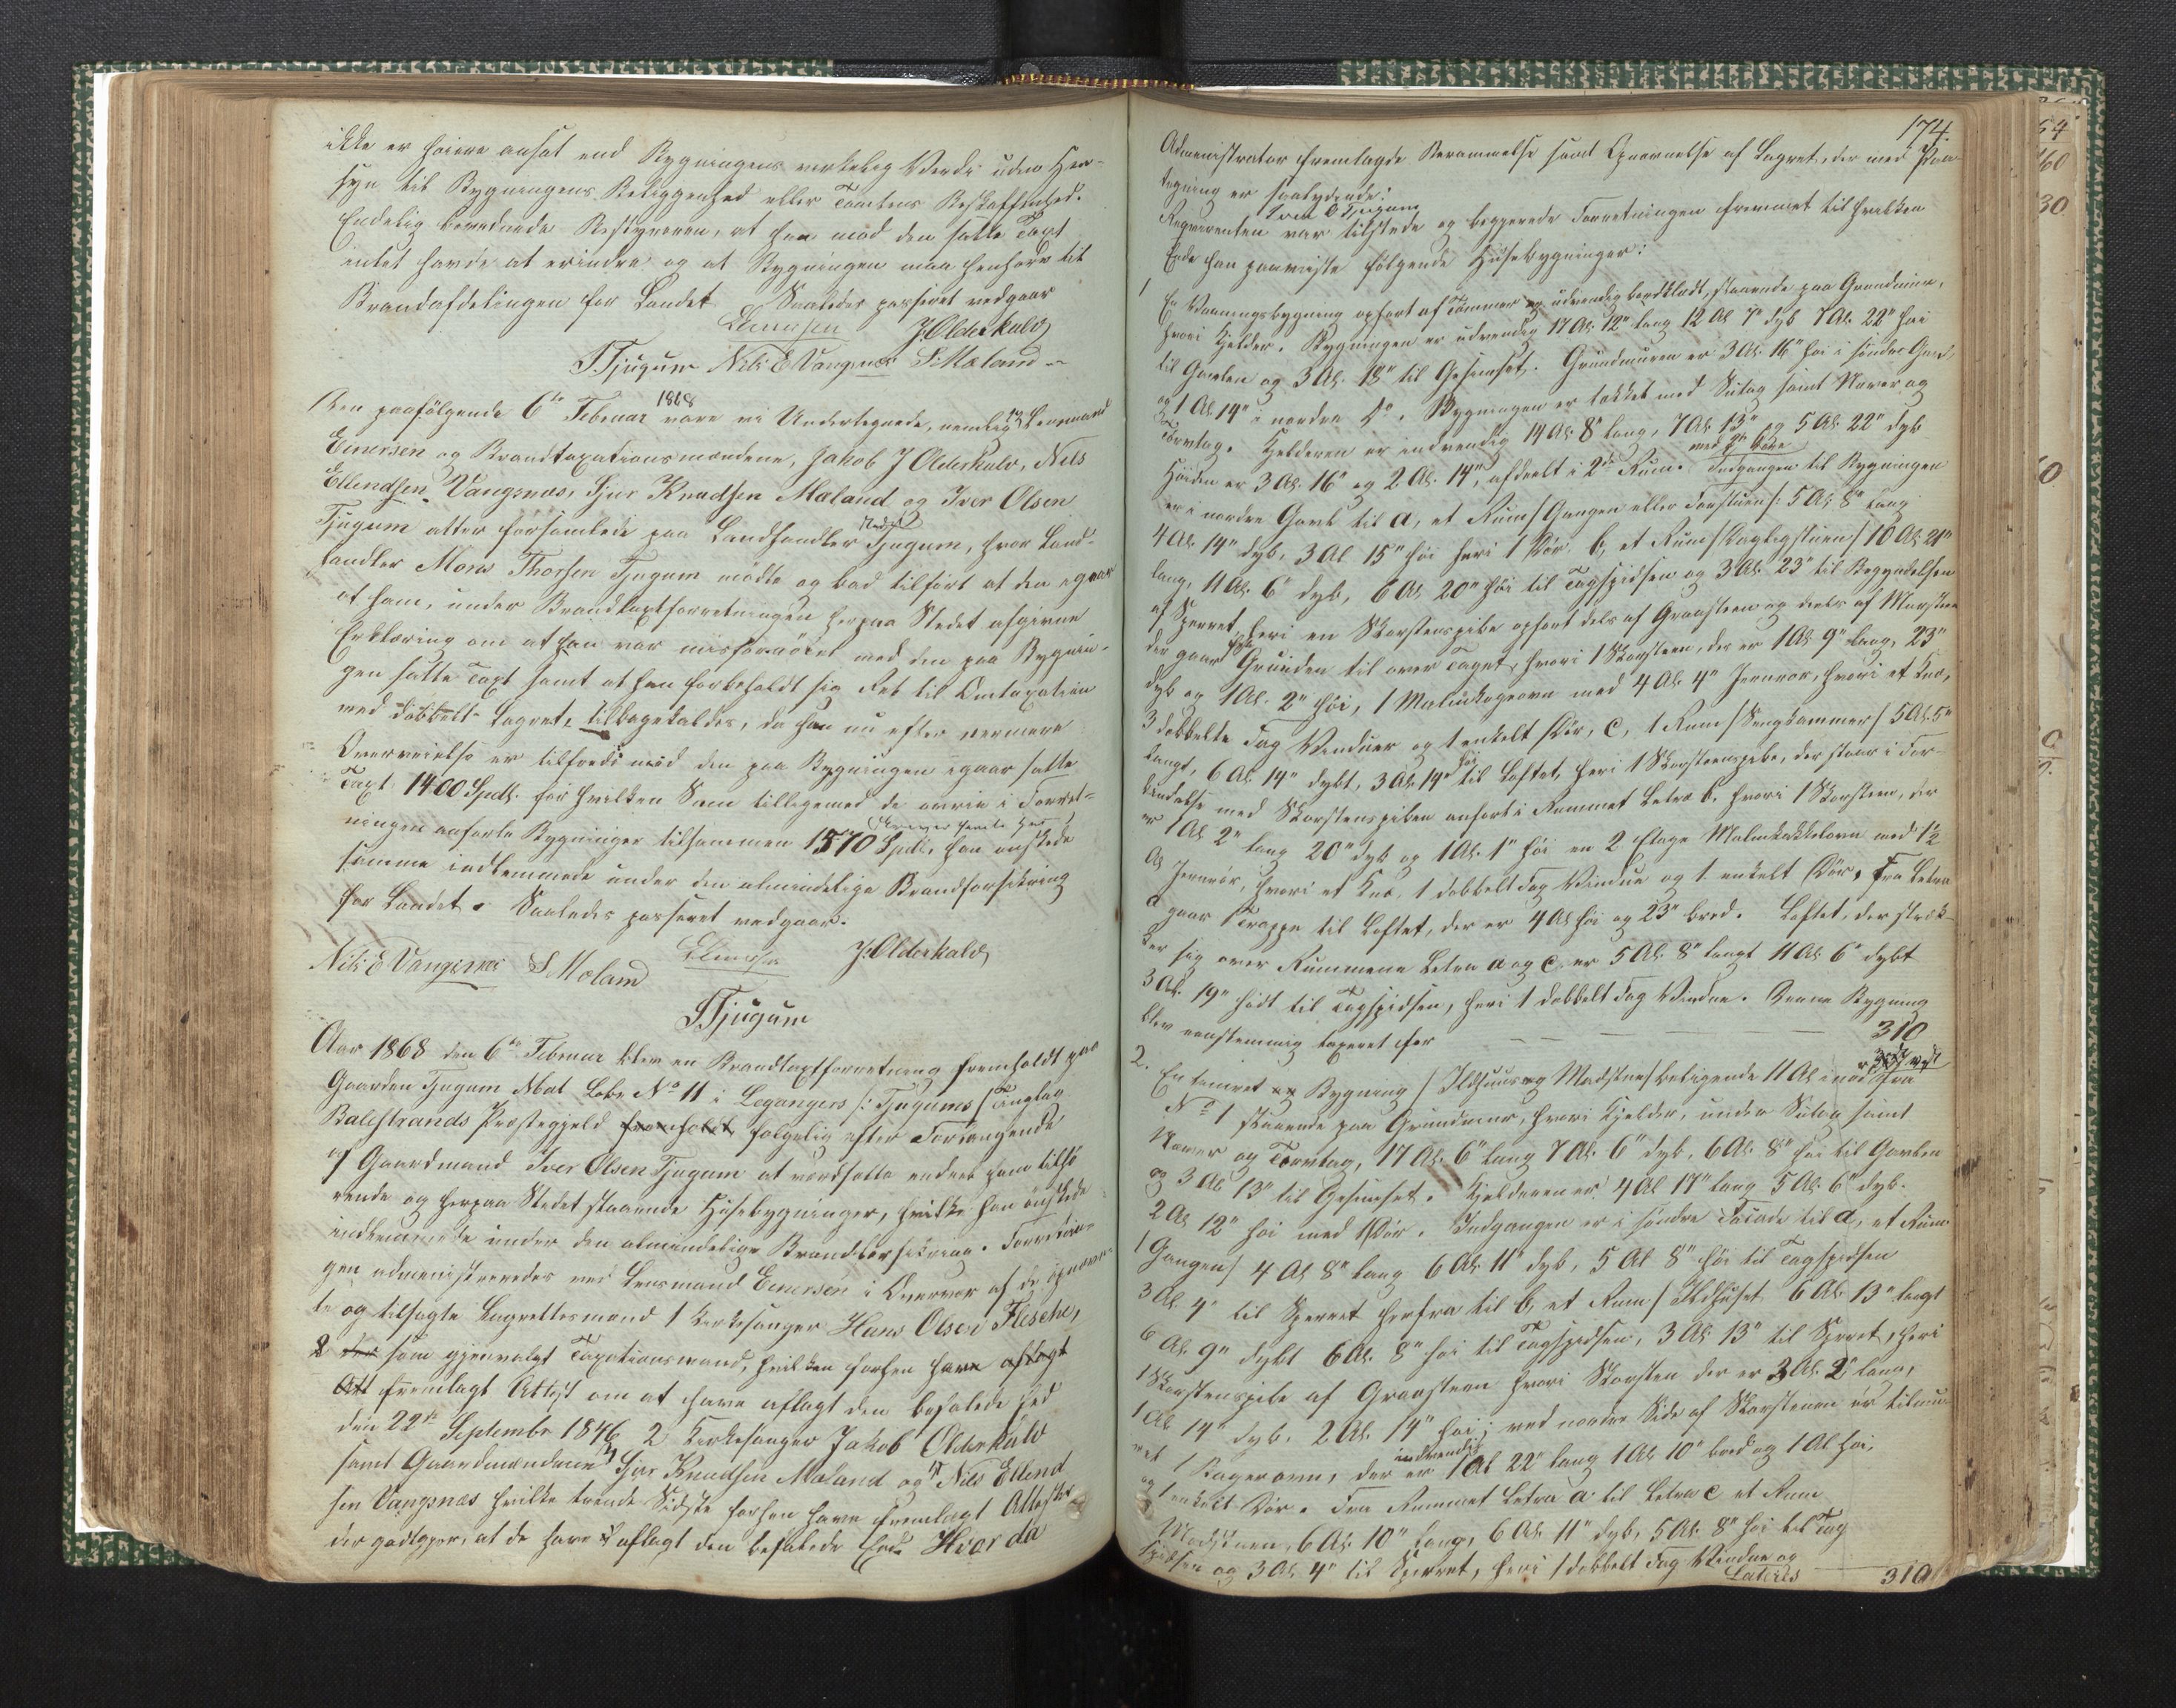 ikke er høiere ansat end Bygningens virkelig Værdi uden Hen-
syn til Bygningens Beliggenhed eller Tomtens Beskaffenhed.
Endelig bemærkede Bestyreren, at han mod den satte Taxt
intet havde at erindre og at Bygningen maa henhøre til
Brandafdelingen for Landet. Saaledes passeret vedgaar
Einersen J. Olderkalv
T Tjugum Nils E Vangsnæs S. Mæland
Den paafølgende 6te Februar 1868 vare vi Undertegnede, nemlig Lensmand
Einersen og Brandtaxationsmændene, Jakob J Olderkalv, Nils
Ellendsen Vangsnæs, Sjur Knudsen Mæland og Iver Olsen
Tjugum atter forsamlede paa Landhandler Tjugum, hvor Land-
handler Mons Thorsen Tjugum mødte og bad tilført at den igaar
af ham, under Brandtaxtforretningen herpaa Stedet afgivne
Erklæring om at han var misfornøiet med den paa Bygnin-
gen satte Taxt samt at han forbeholdt sig Ret til Omtaxation
med dobbelt Lagret, tilbagekaldes, da han nu efter nærmere
Overveielse er tilfreds med den paa Bygningen igaar satte
Taxt 1400 Spdlr. for hvilken Sum tilligemed de øvrige i Forret-
ningen anførte Bygninger tilsammen 1570 Spdlr. han ønskede
samme indlemmede under den almindelige Brandforsikring
for Landet. Saaledes passeret vedgaar.
Nils E Vangsnæs S Mæland Einersen J: Olderkalv
T Tjugum
Aar 1868 den 6te Februar blev en Brandtaxtforretning fremholdt paa
Gaarden Tjugum Mat Løbe No 11 i Leganger /: Tjugums / Tinglag
Balestrands Præstegjeld fremholdt, følgelig efter Forlangende
af Gaardmand Iver Olsen Tjugum at værdsætte endeel ham tilhø
rende og herpaa Stedet staaende Husebygninger, hvilke han ønskede
indlemmede under den almindelige Brandforsikring. Forretnin-
gen administreredes ved Lensmand Einersen i Overvær af de opnævn-
te og tilsagte Lagrettesmænd 1 Kirkesanger Hans Olsen Flesche,
som gjenvalgt Taxationsmand, hvilken forhen have aflagt
fremlagt Attest om at have aflagt den befalede Eed
den 22de September 1846, 2 Kirkesanger Jakob Olderkalv
samt Gaardmændene 3 Sjur Knudsen Mæland og 4 Nils Ellend
sen Vangsnæs hvilke trende Sidste forhen have fremlagt Attester
der godtgjør, at de have aflagt den befalede Eed. Hvor da
174.
Administrator fremlagde Berammelse samt Opnævnelse af Lagret, der med Paa-
tegning er saalydende:
Reqvirenten Iver O Tjugum var tilstede og begjærede Forretningen fremmet til hvilken
Ende han paaviiste følgende Husebygninger:
1 En Vaaningsbygning opført af Tømmer og udvendig bordklædt, staaende paa Grundmuur,
hvori Kjelder. Bygningen er udvendig 17 Al. 12" lang 12 Al 7" dyb 7 Al. 22" høi
til Gavlen og 3 Al. 18" til Gesimset. Grundmuren er 3 Al. 16" høi i søndre Gavl,
og 1 Al 14" i nordre Do. Bygningen er takket med Sutag samt Næver og
Torvtag. Kjelderen er indvendig 14 Al. 8" lang, 7 Al. 13" og 5 Al. 22" dyb
Høiden er 3 Al. 16" og 2 Al. 14", afdeelt i 2de Rum. med 2de Døre Indgangen til Bygningen
er i nordre Gavl til a, et Rum / Gangen eller Forstuen /: 5 Al. 8" lang
4 Al. 14" dyb, 3 Al 15" høi heri 1 Dør. b, et Rum / Dagligstuen / 10 Al. 21"
lang, 11 Al. 6" dyb, 6 Al 20" høi til Tagspidsen og 3 Al. 23" til Begyndelsen
af Sperret heri en Skorstenspibe opført dels af Graasteen og deels af Muursteen
der gaar fra Grunden til over Taget, hvori 1 Skorsteen, der er 1 Al. 9" lang, 23"
dyb og 1 Al. 2" høi, 1 Malmkogeovn med 4 Al. 4" Jernrør, hvori et Knæ,
3 dobbelte Fag Vinduer og 1 enkelt Dør, c, 1 Rum / Sengkammer / 5 Al. 5"
langt, 6 Al. 14" dybt, 3 Al. 14" høi til Loftet, heri 1 Skorsteenspibe, der staar i For-
bindelse med Skorstenspiben anført i Rummet Letra b. hvori 1 Skorsteen, der
er 1 Al 2" lang 20" dyb og 1 Al. 1" høi en 2 Etage Malmkakkelovn med 1½
Al Jernrør, hvori et Knæ. 1 dobbelt Fag Vindue og 1 enkelt Dør. Fra Letra
a gaar 1 Trappe til Loftet, der er 4 Al høi og 23" bred. Loftet, der stræk-
ker sig over Rummene Letra a og c, er 5 Al. 8" langt 11 Al. 6" dybt
3 Al. 19" høit til Tagspidsen, heri 1 dobbelt Fag Vindue. Denne Bygning
blev eenstemmig taxeret for — — — 310
2. En tømret Bygning / Ildhuus og Madstue / beliggende 11 Al i fra
No 1 staaende paa Grundmuur, hvori Kjelder, under Sutag samt
Næver og Torvtag, 17 Al. 6" lang 7 Al. 6" dyb, 6 Al. 8" høi til Gavlen
og 3 Al 13" til Gesimset. Kjelderen er 4 Al 17" lang 5 Al. 6" dyb.
2 Al 12" høi med 1 Dør. Indgangen er i søndre Facade til a, et Rum
/ Gangen / 4 Al 8" lang 6 Al. 11" dyb, 5 Al 8" høi til Tagspidsen
3 Al. 4" til Sperret herfra til b, et Rum / Ildhuset 6 Al. 13" langt
6 Al. 9" dybt 6 Al. 8" høi til Tagspidsen, 3 Al. 13" til Sperret, heri
1 Skorstenspibe af Graasteen hvori Skorsten der er 3 Al. 2" lang,
1 Al 14" dyb. 2 Al. 14" høi; ved nordre Side af Skorstenen er tilmu-
ret 1 Bagerovn, der er indvendig 1 Al 22" lang 1 Al 10" bred og 1 Al høi,
og 1 enkelt Dør. Fra Rummet Letra a til Letra c et Rum
Madstuen, 6 Al. 10" lang, 6 Al. 11" dyb, 5 Al. 8" høi til Tag
spidsen og 3 Al. 4" til Sperret, heri 1 dobbelt Fag Vindue og
Lateris 310